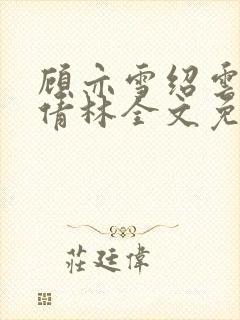 顾亦雪绍雲
倩林全文免
莊廷偉